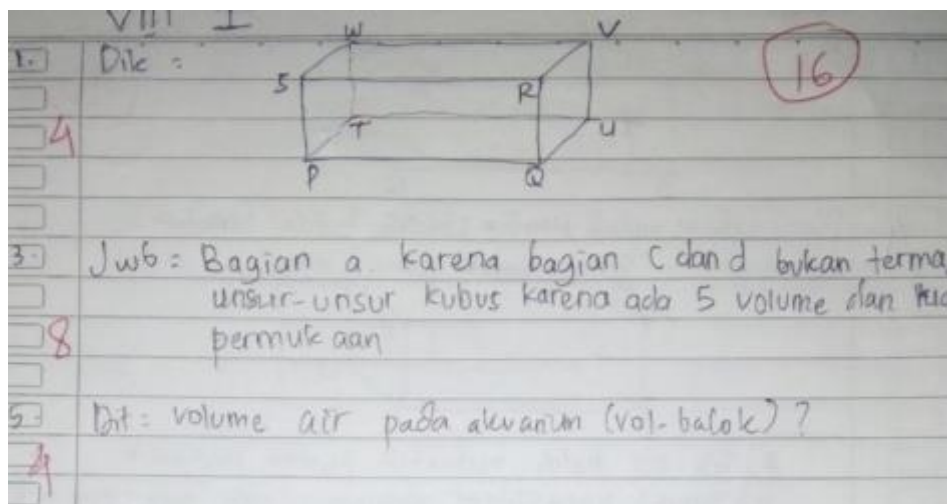 VIII I
1. Dik =
W V
S R
16
T U
4
P Q
3. Jwb = Bagian a karena bagian C dan d bukan terma
unsur-unsur kubus karena ada 5 volume dan
8 permukaan
5. Dit = volume air pada akuarium (vol. balok) ?
4